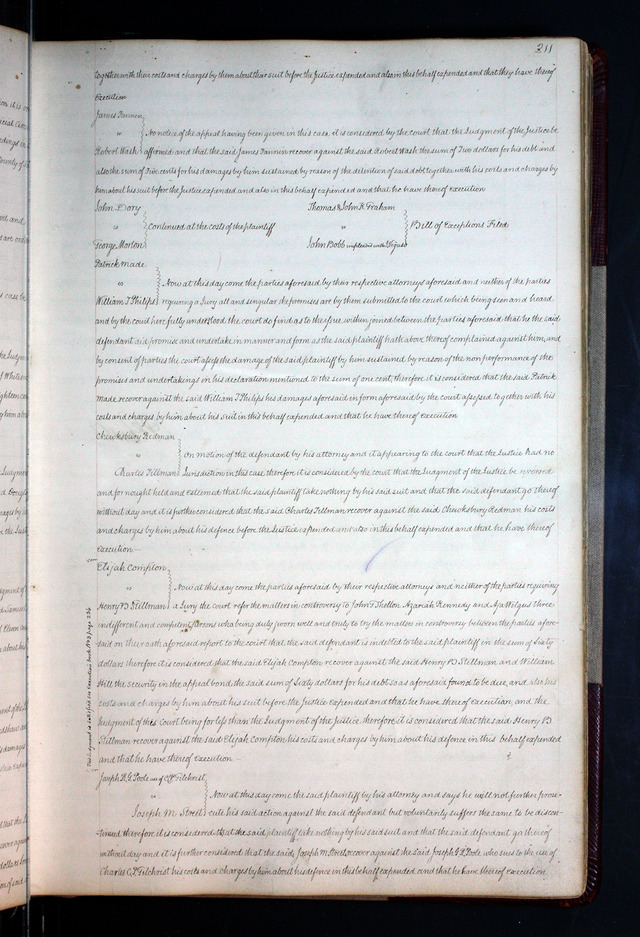 211
together with their costs and charges by them about their suit before the Justice expended and also in this behalf expended and that they have thereof
execution
James Fannin
" No notice of the appeal having been given in this case, it is considered by the court that the Judgment of the Justice be
Robert Wash affirmed and that the said James Fannin recover against the said Robert Wash the sum of Two dollars for his debt and
also the sum of Five cents for his damages by him sustained by reason of the detention of said debt together with his costs and charges by
him about his suit before the Justice expended and also in this behalf expended and that he have thereof execution
John Dory
" Continued at the costs of the plaintiff
George Morton
Thomas & John R
" Bill of Exceptions Filed
John Bobb impleaded with
Patrick Made
" Now at this day come the parties aforesaid by their respective attorneys aforesaid and neither of the parties
William T Philips requiring a Jury all and singular the premises are by them submitted to the court which being seen and heard
and by the court here fully understood the court do find as to the issue within joined between the parties aforesaid that he the said
defendant did promise and undertake in manner and form as the said plaintiff hath above thereof complained against him, and
by consent of parties the court assess the damage of the said plaintiff by him sustained by reason of the non performance of the
promises and undertakings in his declaration mentioned to the sum of one cent, therefore it is considered that the said Patrick
Made recover against the said William T Philips his damages aforesaid in form aforesaid by the court assessed together with his
costs and charges by him about his suit in this behalf expended and that he have thereof execution
Chewksbury Redman
" On motion of the defendant by his attorney and it appearing to the court that the Justice had no
Charles Tillman Jurisdiction in this case therefore it is considered by the court that the Judgment of the Justice be reversed
and for nought held and esteemed that the said plaintiff take nothing by his said suit and that the said defendant go thereof
without day and it is further considered that the said Charles Tillman recover against the said Chewksbury Redman his costs
and charges by him about his defence before the Justice expended and also in this behalf expended and that he have thereof
execution
Elijah Compton
" Now at this day come the parties aforesaid by their respective attorneys and neither of the parties requiring
Henry B Stillman a Jury the court refer the matters in controversy to John F Azariah Kennedy and Asa Wilgus three
indifferent and competent persons who being duly sworn well and truly to try the matters in controversy between the parties afore-
said on their oath aforesaid report to the court that the said defendant is indebted to the said plaintiff in the sum of Sixty
dollars therefore it is considered that the said Elijah Compton recover against the said Henry B Stillman and William
Hill the security in the appeal bond, the said sum of Sixty dollars for his debt so as aforesaid found to be due, and also his
costs and charges by him about his suit before the Justice expended and that he have thereof execution, and the
Judgment of this court being for less than the Judgment of the Justice therefore it is considered that the said Henry B
Stillman recover against the said Elijah Compton his costs and charges by him about his defence in this behalf expended
and that he have thereof execution
This Judgment is satisfied see Execution book No 3 page 236
Joseph R G Poole use of C P Gilchrist
" Now at this day come the said plaintiff by his attorney and says he will not further prose-
Joseph M. Street cute his said action against the said defendant but voluntarily suffers the same to be discon-
tinued therefore it is considered that the said plaintiff take nothing by his said suit and that the said defendant go thereof
without day and it is further considered that the said Joseph M. Street recover against the said Joseph G R Poole who sues to the use of
Charles C. P. Gilchrist his costs and charges by him about his defence in this behalf expended and that he have thereof execution